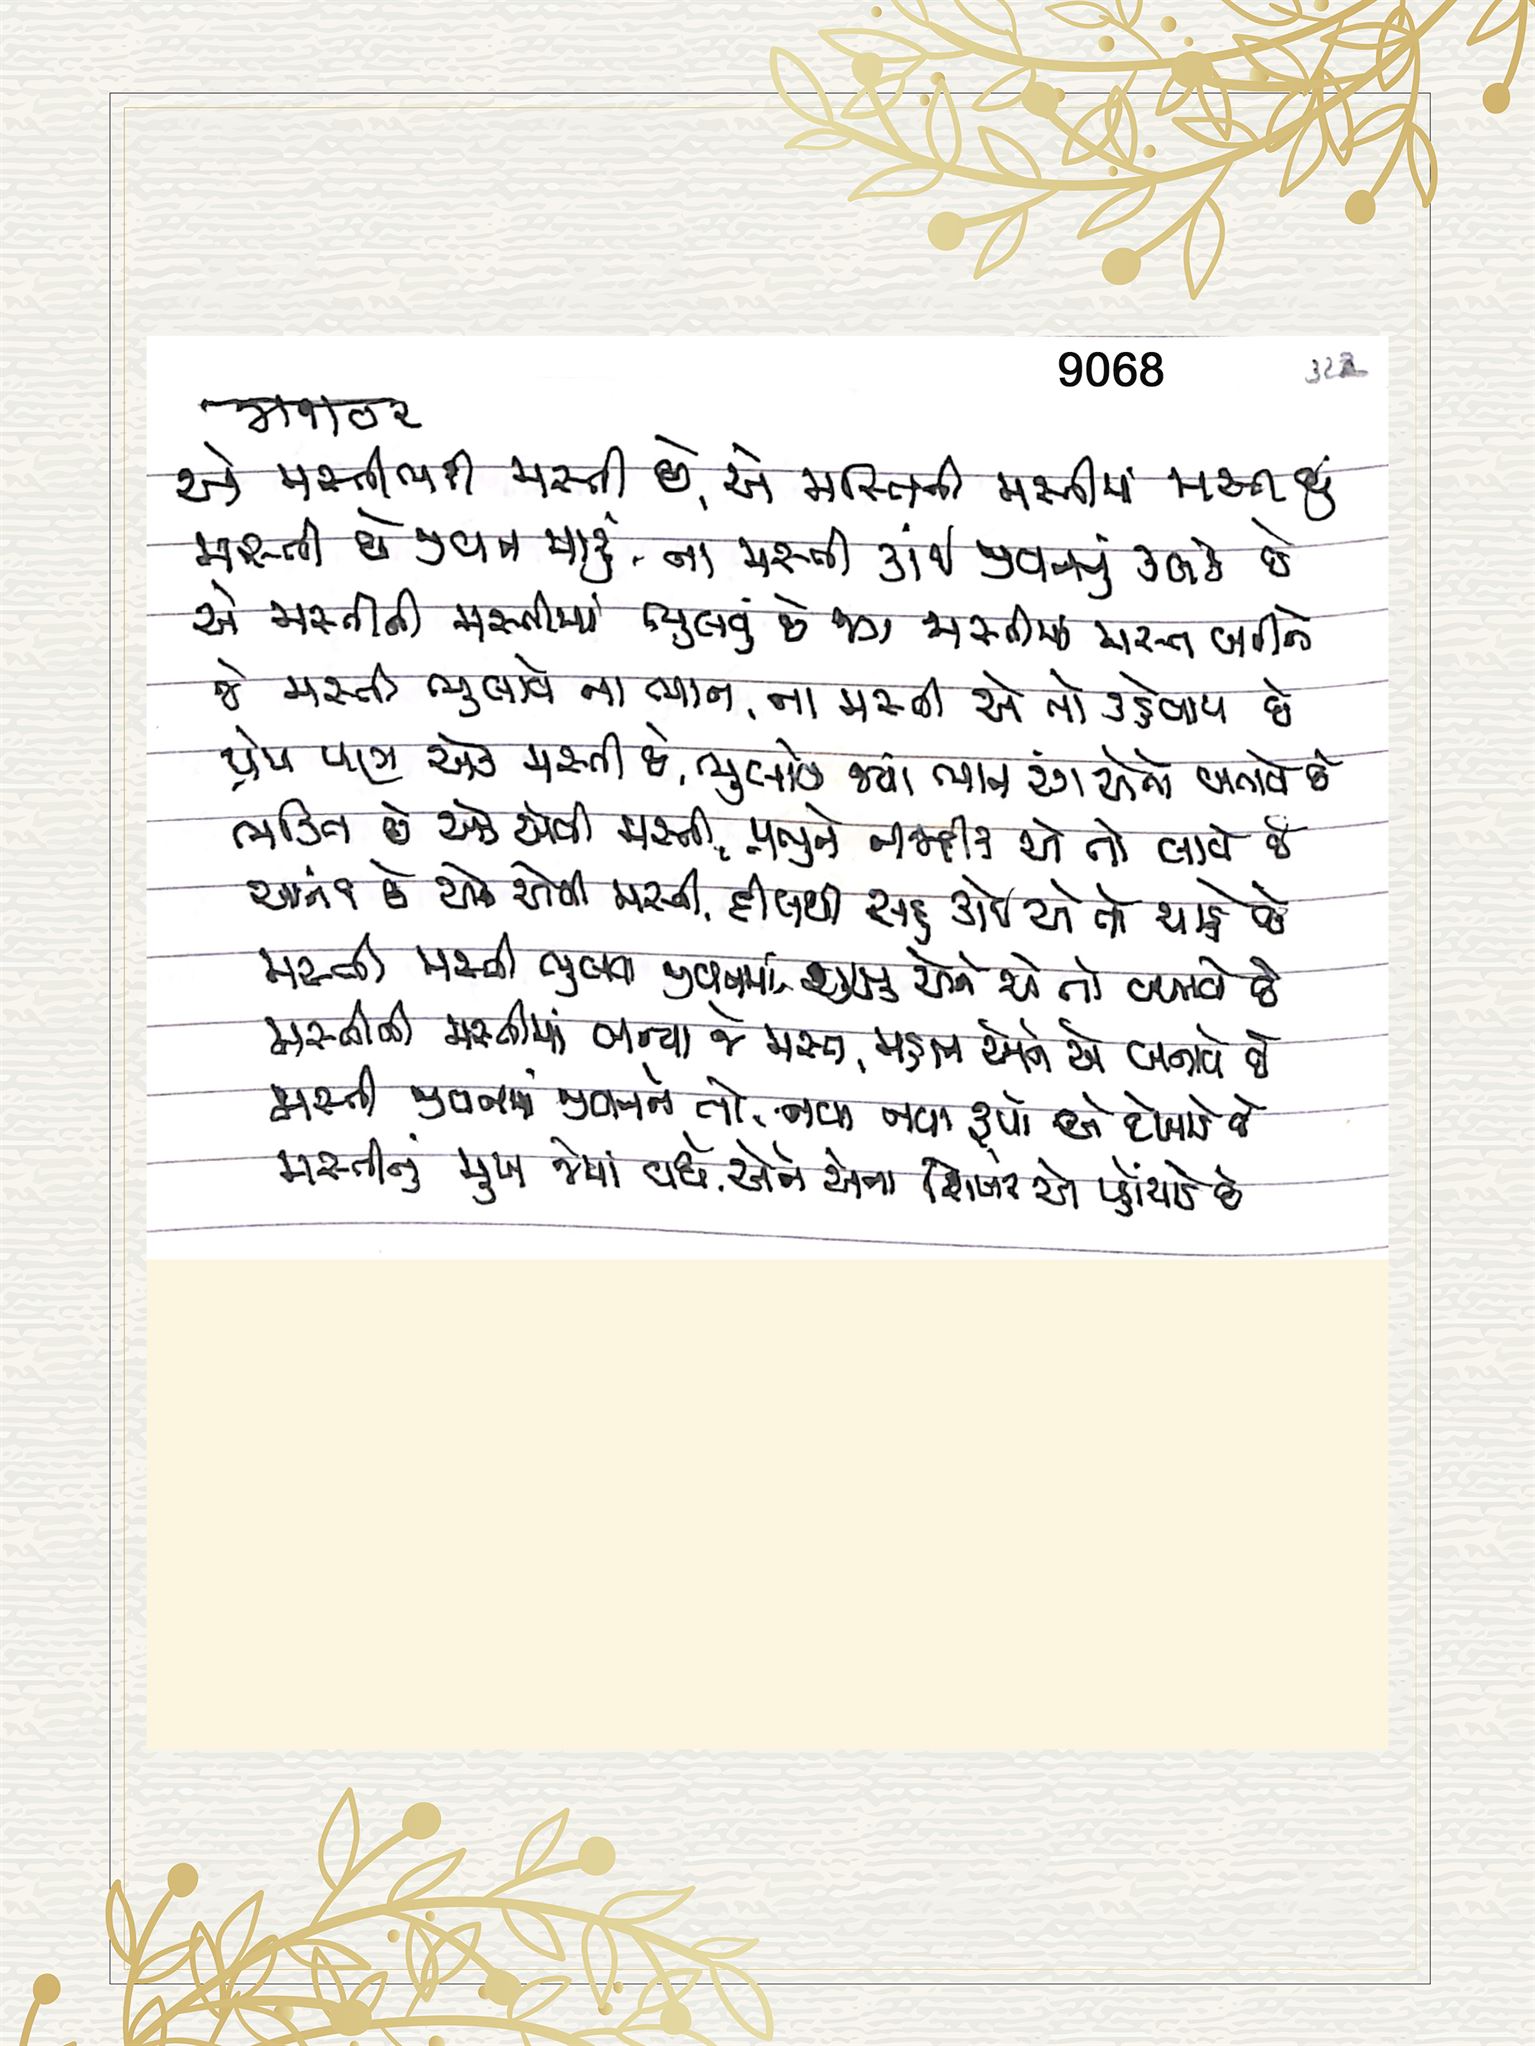 9068
એ મસ્તીભરી મસ્તી છે, એ મસ્તિની મસ્તીમાં મસ્ત છું
મસ્તી છે જીવન મારું, ના મસ્તી કાંઈ જીવનનું
એ મસ્તીની મસ્તીમાં ભુલવું છે જગ મસ્તીમાં મસ્ત બનીને
જે મસ્તી ભુલાવે ના ભાન, ના મસ્તી એ તો કહેવાય છે
પ્રેમ પણ એક મસ્તી છે, ભુલાવે જ્યાં ભાન રંગ એનો બતાવે છે
ભક્તિ છે એક એવી મસ્તી, પ્રભુને નજદીક એ તો લાવે છે
આનંદ છે એક એવી મસ્તી, દીલથી સહુ કોઈ એ તો ચાહે છે
મસ્તી મસ્તી ભુલવા જીવનમાં, એને એ તો બનાવે છે
મસ્તીની મસ્તીમાં બન્યા જે મસ્ત, મહાન એને એ બનાવે છે
મસ્તી જીવનમાં જીવનને તો, નવા નવા રૂપો એ દેખાડે છે
મસ્તીનું મુખ જેમાં વધે, એને એના શિખર એ પહોંચાડે છે